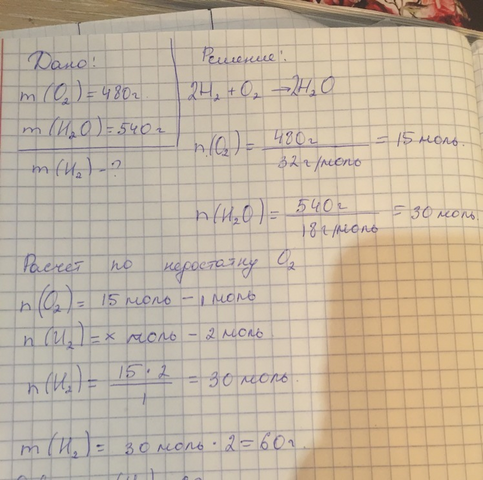 Дано:
m(O₂) = 480г.
m(H₂O) = 540г
m(H₂) - ?
Решение:
2H₂ + O₂ → 2H₂O
n(O₂) = 480г / 32г/моль = 15 моль.
n(H₂O) = 540г / 18г/моль = 30 моль.
Расчет по недостатку O₂
n(O₂) = 15 моль - 1 моль
n(H₂) = x моль - 2 моль.
n(H₂) = 15 · 2 / 1 = 30 моль.
m(H₂) = 30 моль · 2 = 60г.